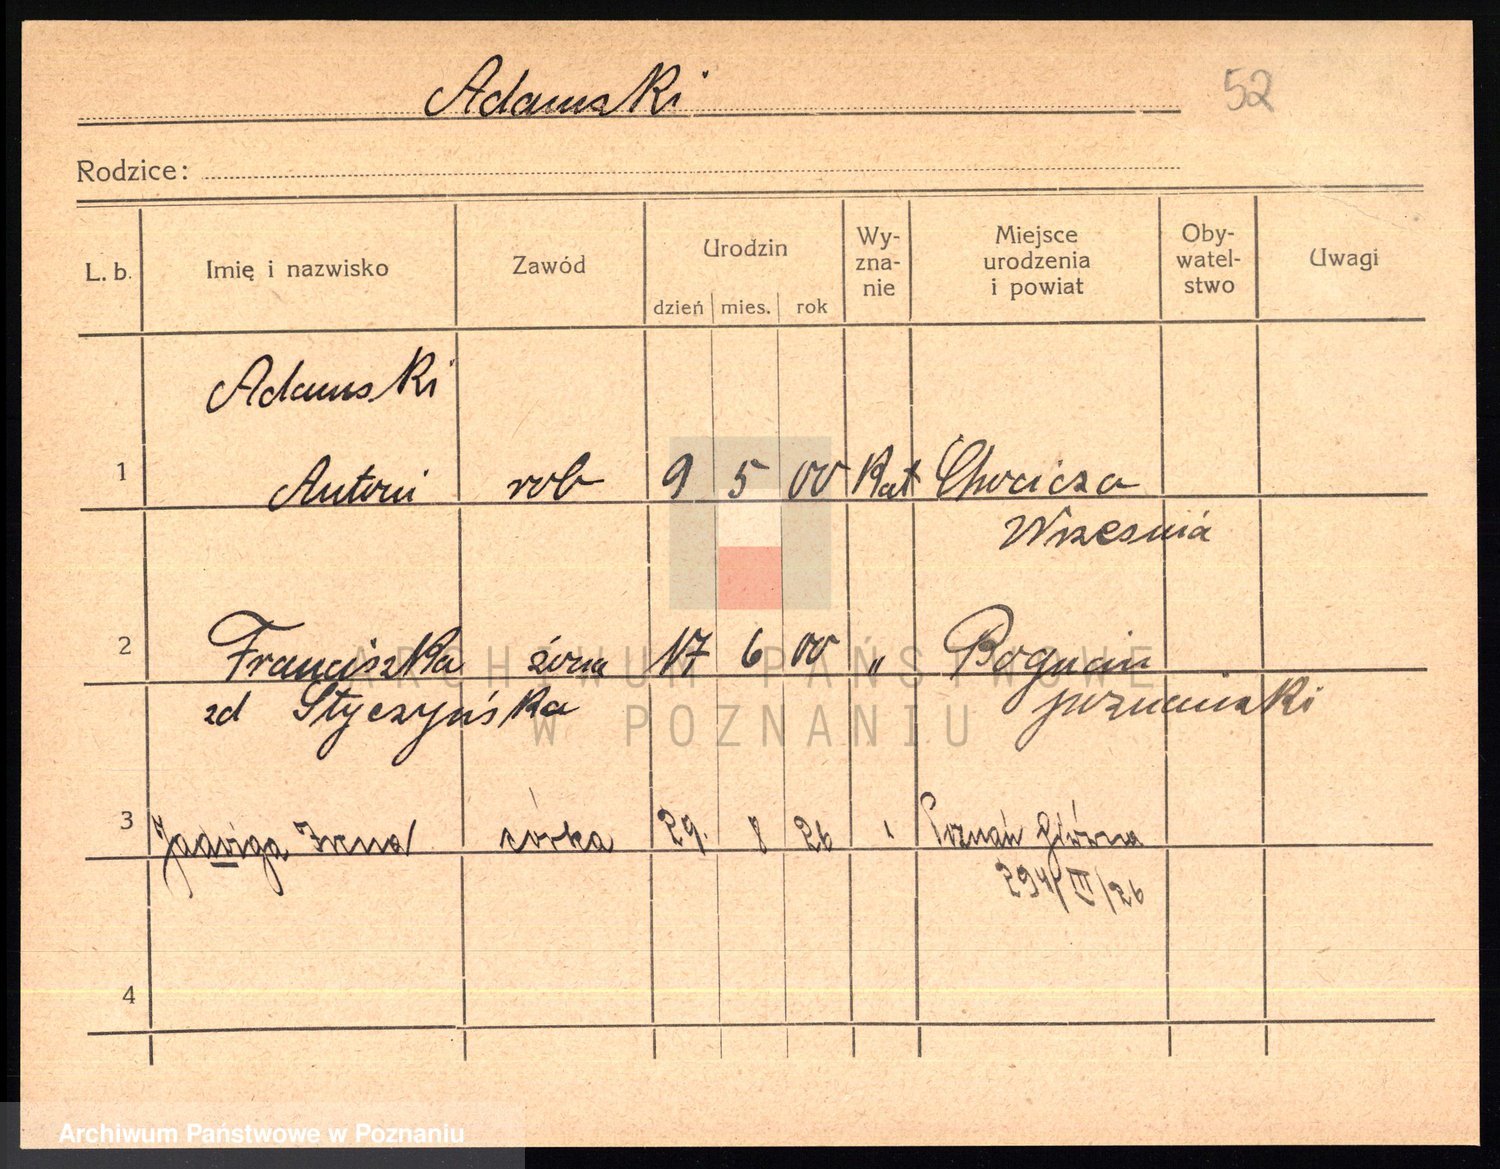 Adamski 52
Rodzice:
L. b. Imię i nazwisko Zawód Urodzin dzień mies. rok Wy-zna-nie Miejsce urodzenia i powiat Oby-watel-stwo Uwagi
Adamski
1 Antoni rob 9 5 00 Kat Chocicza
Wrzesnia
2 Franciszka żona 17 6 00 " Bogucin
zd Styczyńska poznanski
3 Jadwiga Irena córka 29. 8 26 " Poznań Główna
/III/26
4
ARCHIWUM PAŃSTWOWE
W POZNANIU
Archiwum Państwowe w Poznaniu